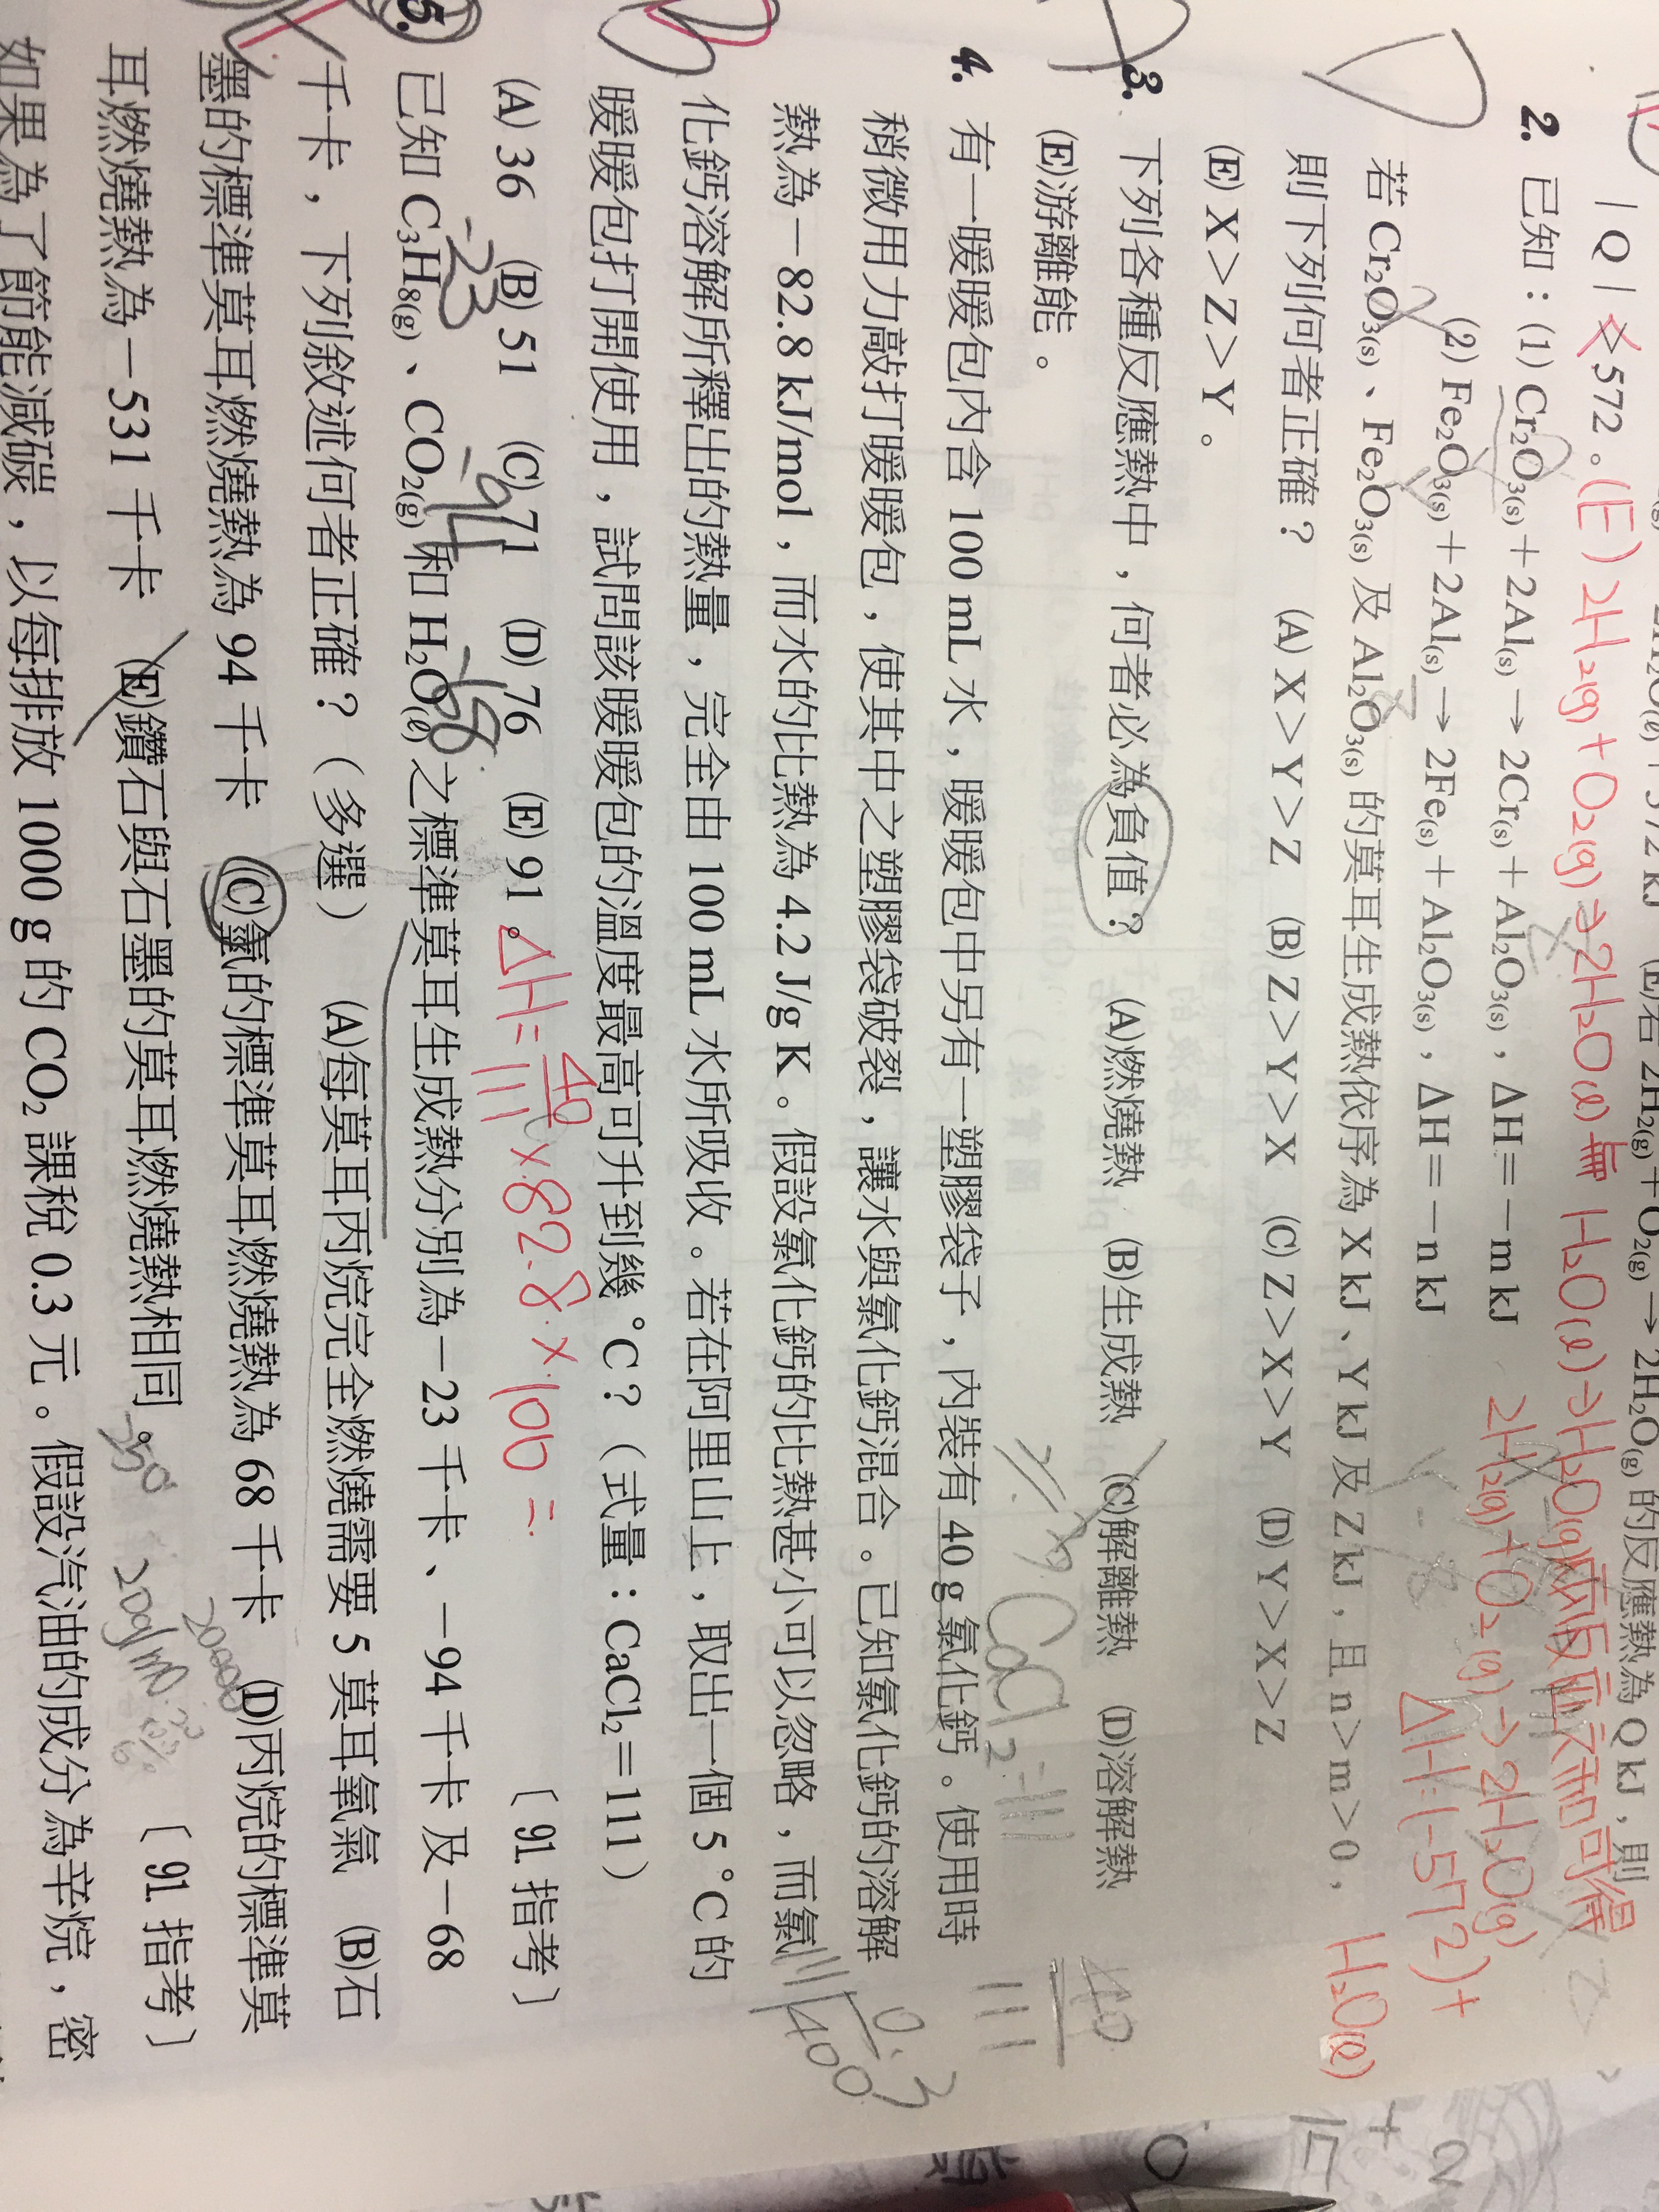 2H₂O(ℓ)+572 kJ (E)若 2H₂(g)+O₂(g)→2H₂O(g) 的反應熱為 Q kJ,則
|Q|>572。(E) 2H₂(g)+O₂(g)→2H₂O(ℓ)與 H₂O(ℓ)→H₂O(g)兩反應式和可得
2H₂(g)+O₂(g)→2H₂O(g)
ΔH=(-572)+
H₂O(ℓ)
2. 已知:(1) Cr₂O₃(s)+2Al(s)→2Cr(s)+Al₂O₃(s),ΔH=-m kJ
(2) Fe₂O₃(s)+2Al(s)→2Fe(s)+Al₂O₃(s),ΔH=-n kJ
若 Cr₂O₃(s)、Fe₂O₃(s) 及 Al₂O₃(s) 的莫耳生成熱依序為 X kJ、Y kJ 及 Z kJ,且 n>m>0,
則下列何者正確? (A) X>Y>Z (B) Z>Y>X (C) Z>X>Y (D) Y>X>Z
(E) X>Z>Y。
3. 下列各種反應熱中,何者必為負值? (A)燃燒熱 (B)生成熱 (C)解離熱 (D)溶解熱
(E)游離能。
CaCl₂=111
40
111
4. 有一暖暖包內含 100 mL 水,暖暖包中另有一塑膠袋子,內裝有 40 g 氯化鈣。使用時
稍微用力敲打暖暖包,使其中之塑膠袋破裂,讓水與氯化鈣混合。已知氯化鈣的溶解
熱為-82.8 kJ/mol,而水的比熱為 4.2 J/g K。假設氯化鈣的比熱甚小可以忽略,而氯
化鈣溶解所釋出的熱量,完全由 100 mL 水所吸收。若在阿里山上,取出一個 5 °C 的
暖暖包打開使用,試問該暖暖包的溫度最高可升到幾 °C?(式量:CaCl₂=111)
(A) 36 (B) 51 (C) 71 (D) 76 (E) 91。 〔91. 指考〕
ΔH=40/111×82.8×100=
0.3
111 400
-23 -94 -68
5. 已知 C₃H₈(g)、CO₂(g) 和 H₂O(ℓ) 之標準莫耳生成熱分別為-23 千卡、-94 千卡及-68
千卡,下列敘述何者正確?(多選) (A)每莫耳丙烷完全燃燒需要 5 莫耳氧氣 (B)石
墨的標準莫耳燃燒熱為 94 千卡 (C)氫的標準莫耳燃燒熱為 68 千卡 (D)丙烷的標準莫
耳燃燒熱為-531 千卡 (E)鑽石與石墨的莫耳燃燒熱相同。 〔91. 指考〕
如果為了節能減碳,以每排放 1000 g 的 CO₂ 課稅 0.3 元。假設汽油的成分為辛烷,密